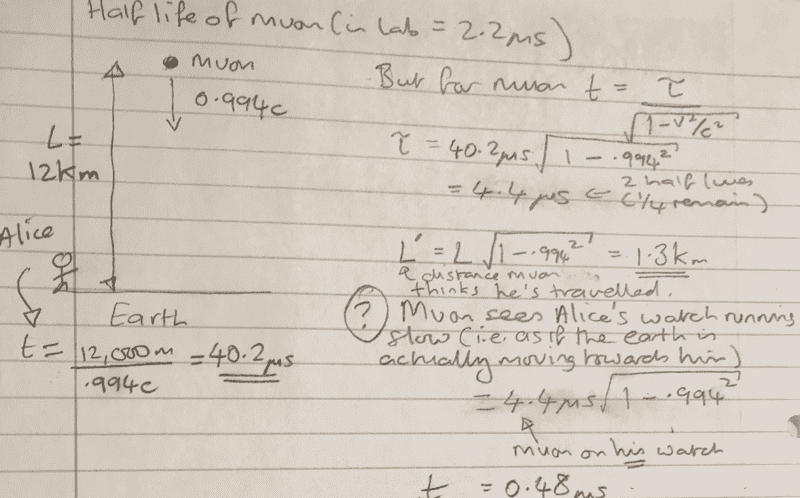 Half life of muon (in lab = 2.2μs)
Muon
0.994c
L =
12km
Alice
Earth
t = 12,000m / .994c = 40.2μs
But for muon t = τ / √1-v²/c²
τ = 40.2μs √1 - .994²
= 4.4μs ← 2 half lives
(1/4 remain)
L' = L √1-.994² = 1.3km
distance muon
thinks he's travelled.
(?) Muon sees Alice's watch running
slow (i.e. as if the earth is
actually moving towards him)
= 4.4μs √1 - .994²
muon on his watch
t = 0.48μs